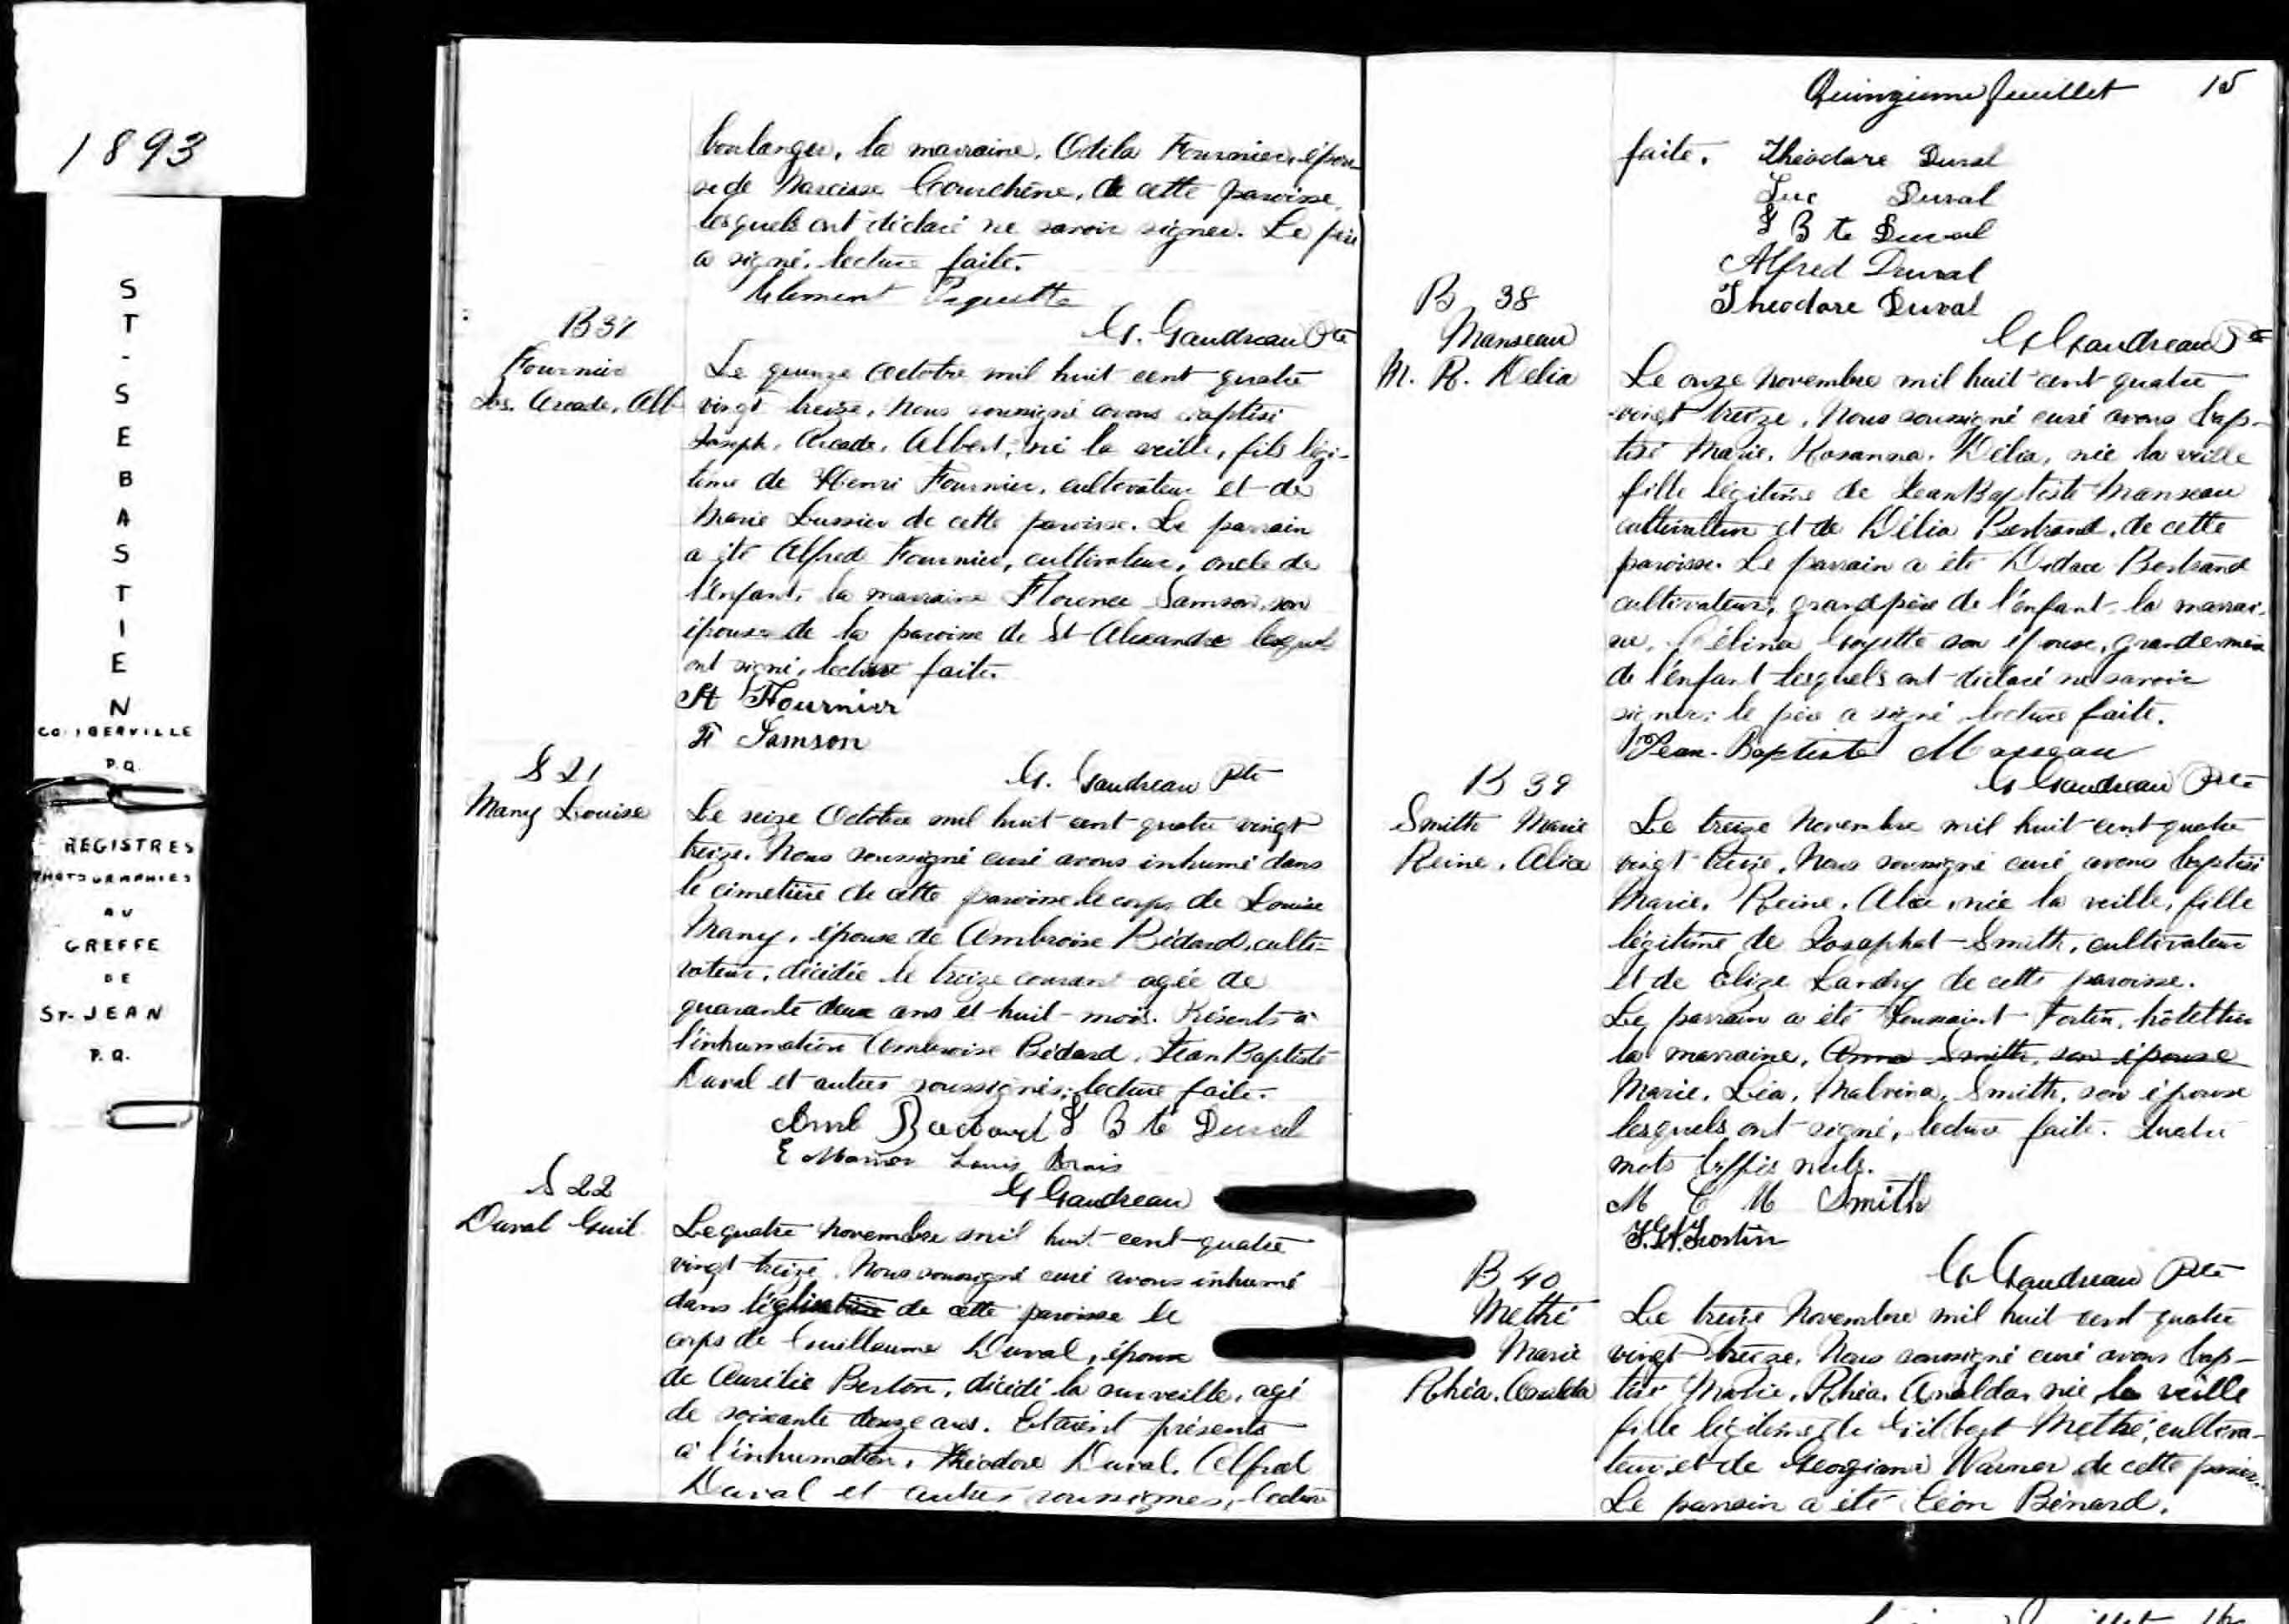 1893
ST-SEBASTIEN
CO. IBERVILLE
P.Q.
REGISTRES
PHOTOGRAPHIES
AU
GREFFE
DE
ST-JEAN
P.Q.
boulanger, la marraine, Odila Fournier, épou-
se de Narcisse Courchêne, de cette paroisse,
lesquels ont déclaré ne savoir signer. Le père
a signé, lecture faite.
Clement Paquette
G. Gaudreau Ptre
B 37
Fournier
Jos. Arcade, Alb
Le quinze Octobre mil huit cent quatre
vingt treize, Nous soussigné avons baptisé
Joseph, Arcade, Albert, né la veille, fils légi-
time de Henri Fournier, cultivateur et de
Marie Lussier de cette paroisse. Le parrain
a été Alfred Fournier, cultivateur, oncle de
l'enfant, la marraine Florence Samson, son
épouse de la paroisse de St-Alexandre lesquels
ont signé, lecture faite.
A Fournier
F Samson
G. Gaudreau Ptre
S 21
Many Louise
Le seize Octobre mil huit cent quatre vingt
treize, Nous soussigné curé avons inhumé dans
le cimetière de cette paroisse le corps de Louise
Many, épouse de Ambroise Bédard, culti-
vateur, décédée le treize courant agée de
quarante deux ans et huit mois. Présents à
l'inhumation Ambroise Bédard, Jean Baptiste
Duval et autres soussignés; lecture faite.
Amb J B te Duval
E Louis Brais
G Gaudreau
S 22
Duval Guil.
Le quatre novembre mil huit cent quatre
vingt treize, Nous soussigné curé avons inhumé
dans l'église de cette paroisse le
corps de Guillaume Duval, époux
de Aurélie Berton, décédé la surveille, agé
de soixante ans. Etaient présents
à l'inhumation, Théodore Duval, Alfred
Duval et autres soussignés, lecture
Quinzieme feuillet 15
faite. Théodore Duval
Luc Duval
J B te Duval
Alfred Duval
Theodore Duval
G Gaudreau Ptre
B 38
Manseau
M. R. Delia
Le onze Novembre mil huit cent quatre
vingt treize, Nous soussigné curé avons bap-
tisé Marie, Rosanna, Délia, née la veille
fille légitime de Jean Baptiste Manseau
cultivateur et de Délia Bertrand, de cette
paroisse. Le parrain a été Bertrand
cultivateur, grand père de l'enfant, la marrai-
ne, Célina Goyette son épouse, grande mère
de l'enfant lesquels ont déclaré ne savoir
signer; le père a signé lecture faite.
Jean-Baptiste Masseau
G Gaudreau Ptre
B 39
Smith Marie
Reine, Alice
Le treize Novembre mil huit cent quatre
vingt treize, Nous soussigné curé avons baptisé
Marie, Reine, Alice, née la veille, fille
légitime de Josaphat Smith, cultivateur
et de Elize Landry de cette paroisse.
Le parrain a été Toussaint Fortin, hôtellier
la marraine, Anna Smith, son épouse
Marie, Léa, Malvina, Smith, son épouse
lesquels ont signé, lecture faite. Quatre
mots biffés nuls.
M Smith
Fortin
G Gaudreau Ptre
B 40
Methé
Marie
Rhéa, Analda
Le treize Novembre mil huit cent quatre
vingt treize, Nous soussigné curé avons bap-
tisé Marie, Rhéa, Analda, née la veille
fille légitime de Gilbert Methé, cultiva-
teur, et de Georgiana Warner de cette
Le parrain a été Léon Bénard,